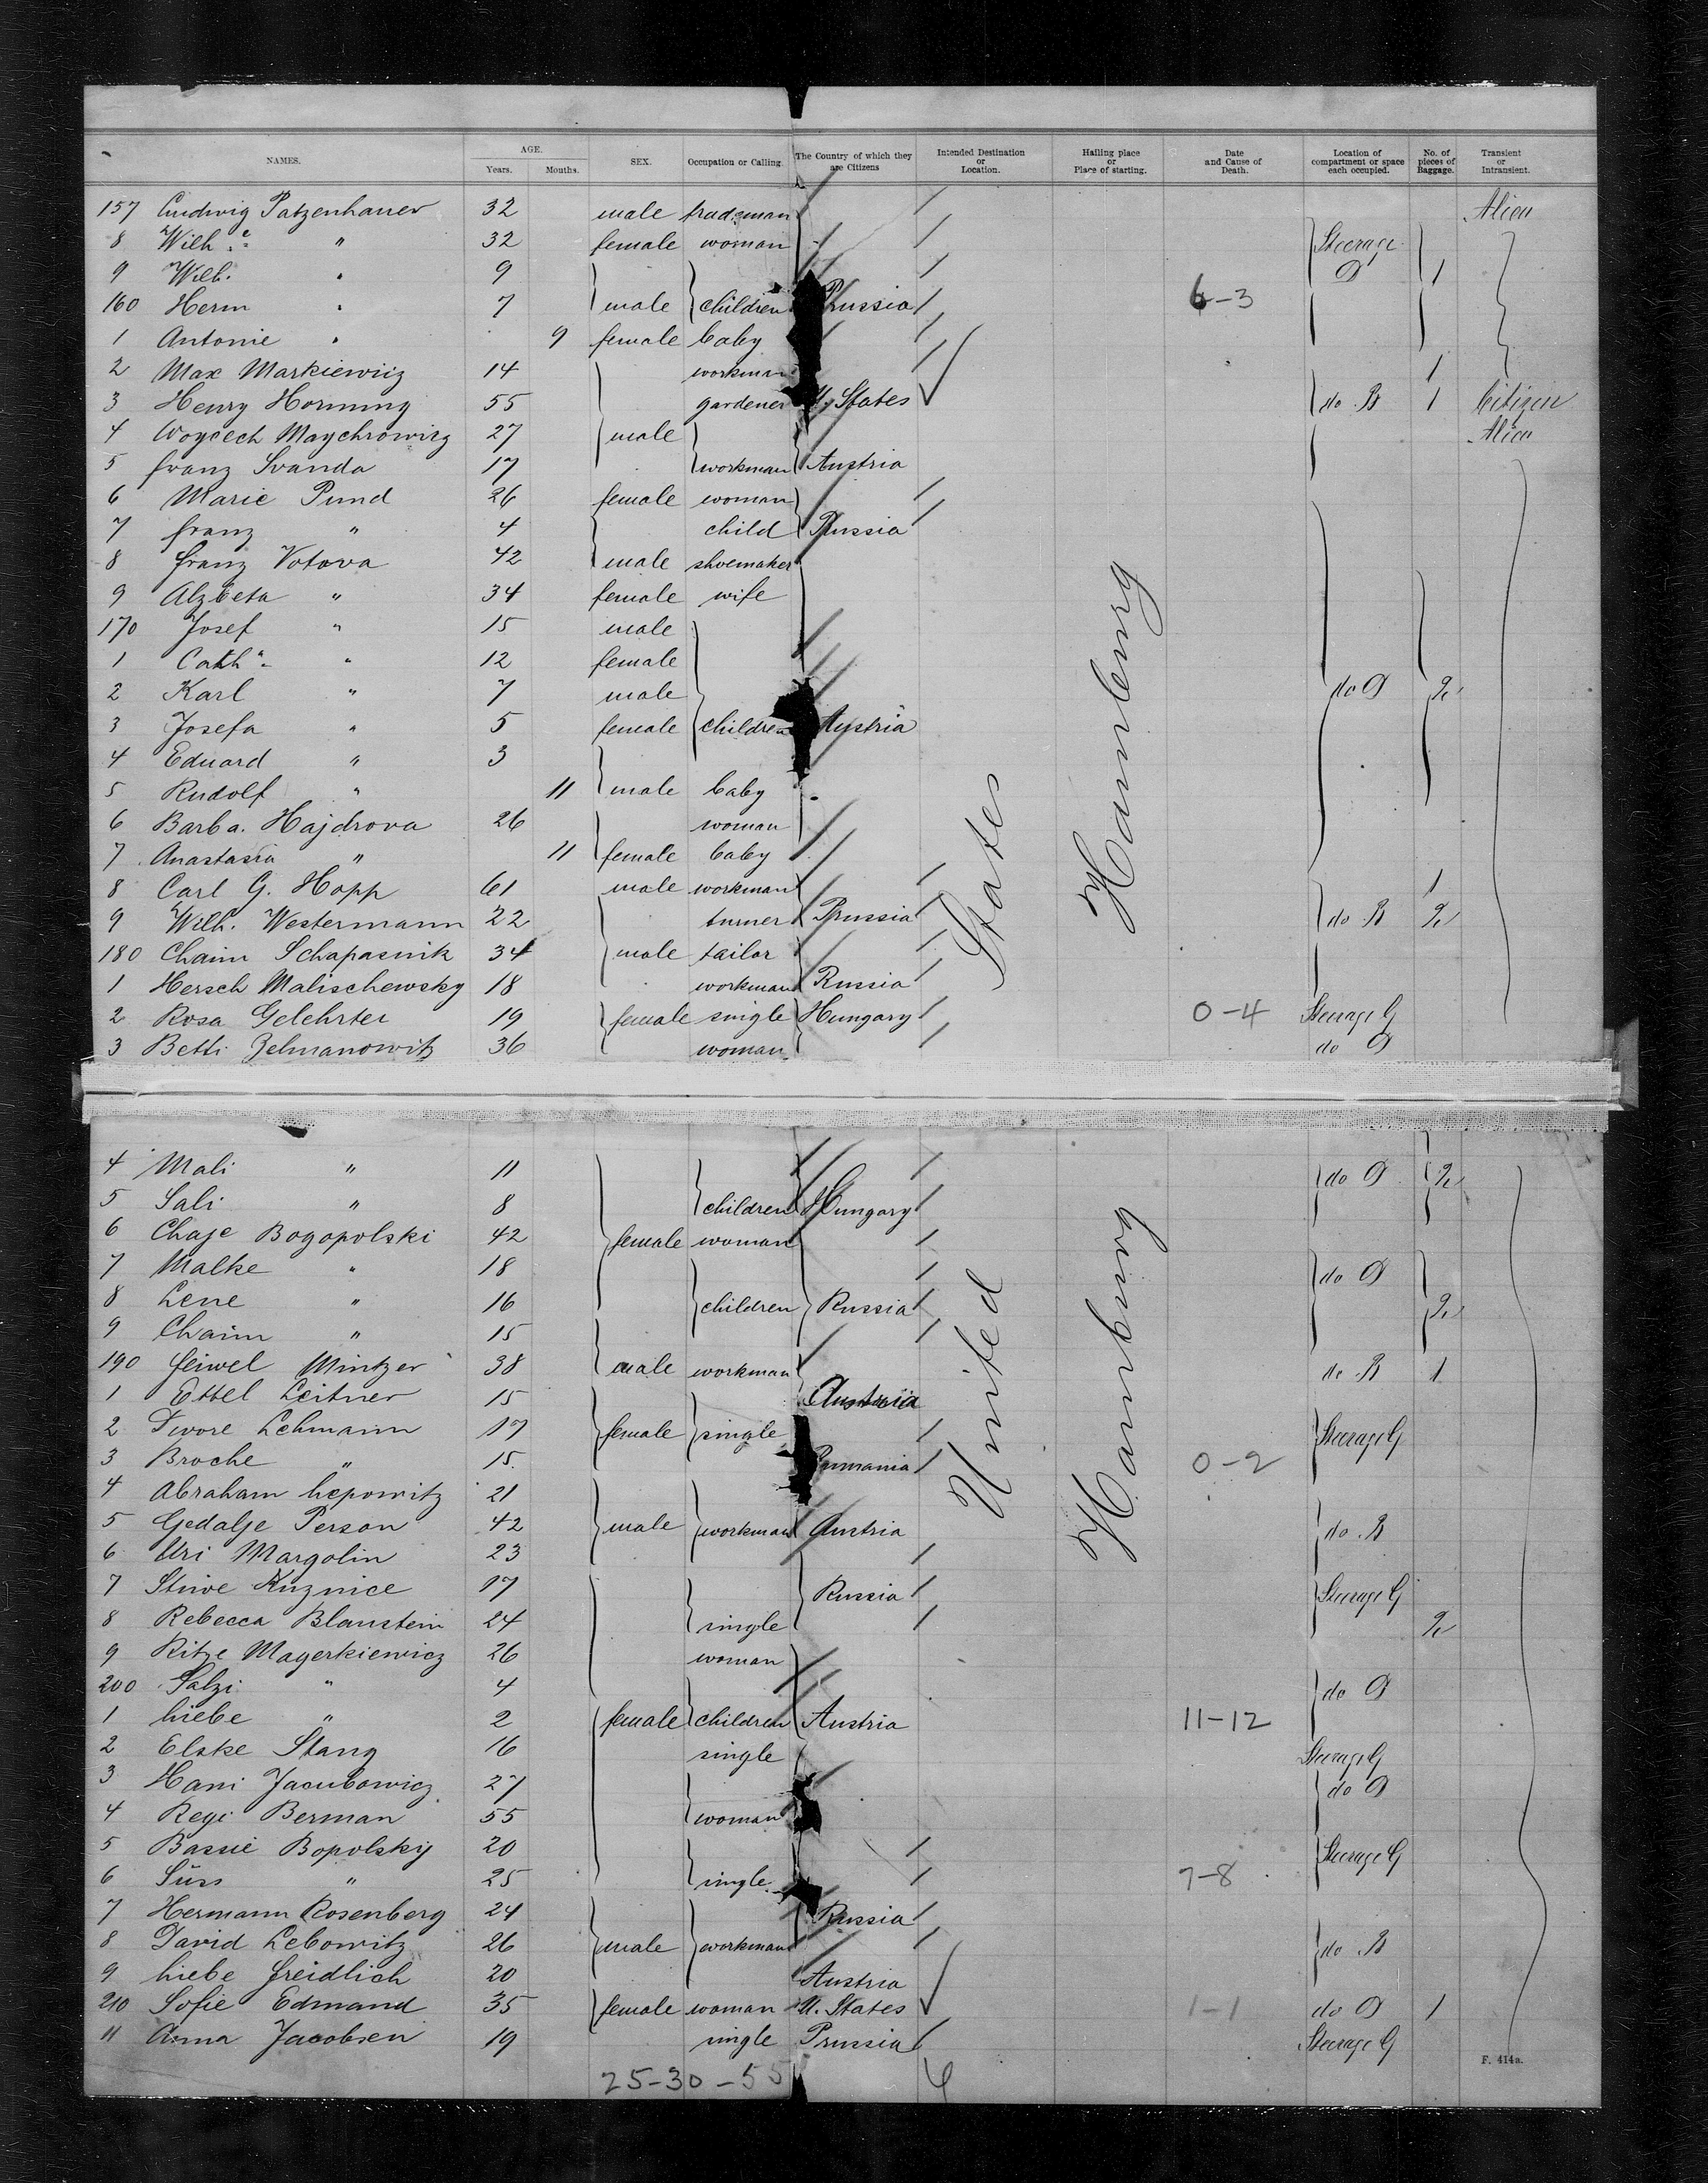 NAMES. AGE. Years. Months. SEX. Occupation or Calling. The Country of which they are Citizens Intended Destination or Location. Hailing place or Place of starting. Date and Cause of Death. Location of compartment or space each occupied. No. of pieces of Baggage. Transient or Intransient.
157 Ludwig Patzenhauer 32 male tradesman Alien
8 Wilh.e " 32 female woman Steerage
9 Wilh. " 9 D 1
160 Herm " 7 male children Prussia 6-3
1 Antonie " 9 female baby
2 Max Markiewicz 14 workman 1
3 Henry Hornung 55 gardener U. States do B 1 Citizen
4 Woycech Maychrowicz 27 male Alien
5 franz Svanda 17 workman Austria
6 Marie Pund 26 female woman
7 franz " 4 child Prussia
8 franz Votova 42 male shoemaker
9 Alzbeta " 34 female wife
170 Josef " 15 male
1 Cath. " 12 female
2 Karl " 7 male do D 2
3 Josefa " 5 female children Austria
4 Eduard " 3
5 Rudolf " 11 male baby
6 Barba. Hajdrova 26 woman
7 Anastasia " 11 female baby
8 Carl G. Hopp 61 male workman 1
9 Wilh. Westermann 22 turner Prussia do B 2
180 Chaim Schapasnik 34 male tailor
1 Hersch Malischewsky 18 workman Russia
2 Rosa Gelehrter 19 female single Hungary 0-4 Steerage G
3 Betti Zelmanowitz 36 woman do D
States
Hamburg
4 Mali " 11 do D 2
5 Sali " 8 children Hungary
6 Chaje Bogopolski 42 female woman
7 Malke " 18 do D
8 Lene " 16 children Russia 2
9 Chaim " 15
190 feiwel Mintzer 38 male workman do B 1
1 Ettel Leitner 15 Austria
2 Dwore Lehmann 17 female single Steerage G
3 Broche " 15 Rumania 0-2
4 Abraham Lepowitz 21
5 Gedalje Person 42 male workman Austria do B
6 Uri Margolin 23
7 Stiwe Kuznice 17 Russia Steerage G
8 Rebecca Blaustein 24 single 2
9 Ritze Mayerkiewicz 26 woman
200 Salzi " 4 do D
1 Liebe " 2 female children Austria 11-12
2 Elske Stang 16 single Steerage G
3 Hani Jacubowicz 27 do D
4 Regi Berman 55 woman
5 Bassie Bopolsky 20 Steerage G
6 Süss " 25 single 7-8
7 Hermann Rosenberg 24 Russia
8 David Lebowitz 26 male workman do B
9 Liebe freidlich 20 Austria
210 Sofie Edmand 35 female woman U. States 1-1 do D 1
11 Anna Jacobsen 19 single Prussia Steerage G
United
Hamburg
F. 414a.
25-30-55